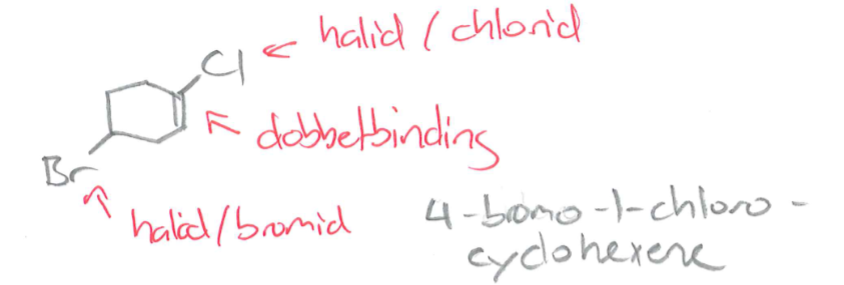 Cl ← halid / chlorid
← dobbeltbinding
Br
halid/bromid
4-bromo-1-chloro-
cyclohexene